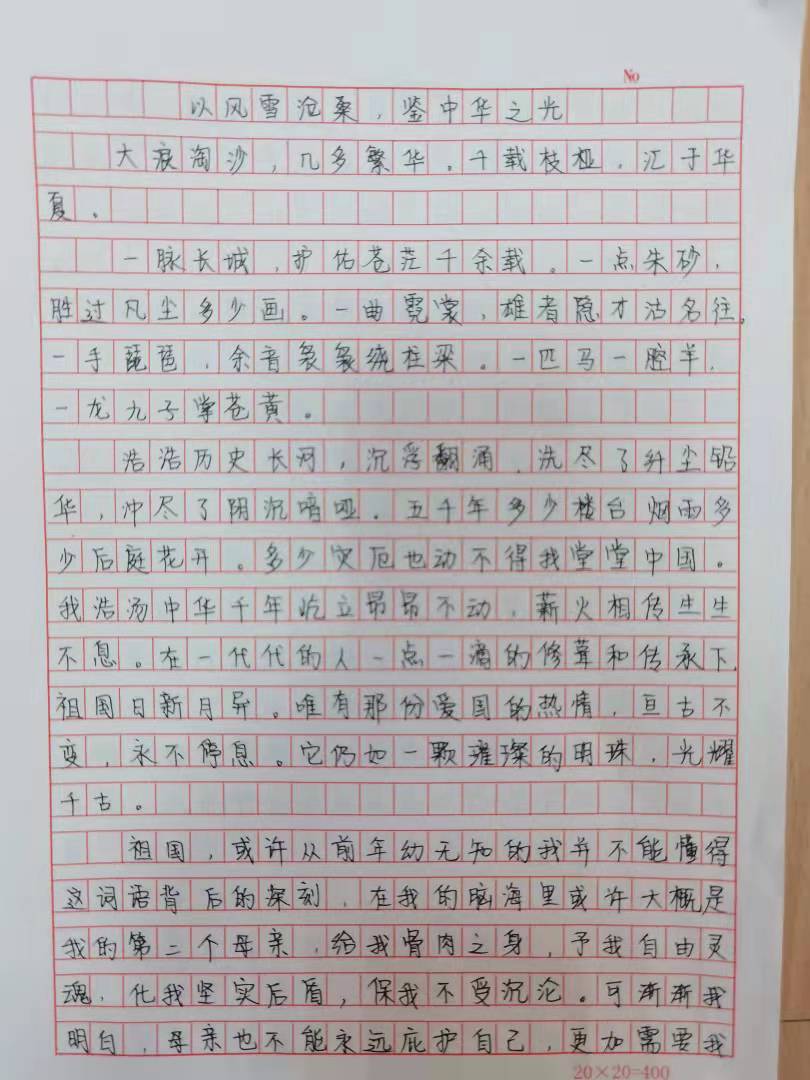 No
以风雪沧桑,鉴中华之光
大浪淘沙,几多繁华。千载枝桠,汇于华
夏。
一脉长城,护佑苍茫千余载。一点朱砂,
胜过凡尘多少画。一曲霓裳,雄者隐才沽名往。
一手琵琶,余音袅袅绕柱梁。一匹马一腔羊,
一龙九子掌苍黄。
浩浩历史长河,沉浮翻涌,洗尽了纤尘铅
华,冲尽了阴沉喑哑。五千年多少楼台烟雨多
少后庭花开。多少灾厄也动不得我堂堂中国。
我浩汤中华千年屹立昂昂不动,薪火相传生生
不息。在一代代的人一点一滴的修葺和传承下,
祖国日新月异。唯有那份爱国的热情,亘古不
变,永不停息。它仍如一颗璀璨的明珠,光耀
千古。
祖国,或许从前年幼无知的我并不能懂得
这词语背后的深刻,在我的脑海里或许大概是
我的第二个母亲,给我骨肉之身,予我自由灵
魂,化我坚实后盾,保我不受沉沦。可渐渐我
明白,母亲也不能永远庇护自己,更加需要我
20×20=400